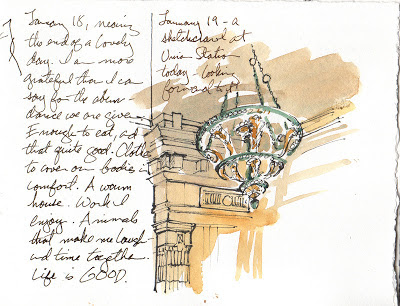 January 18, nearing
the end of a lovely
day. I am more
grateful than I can
say for the abun
dance we are given
Enough to eat, ad
that quite good. Clothes
to cover our bodies in
comfort. A warm
house. Work I
enjoy. Animals
that make me laugh
ad time together.
Life is GOOD.
January 19 - a
sketchcrawl at
Union Station
today - looking
forward to it!